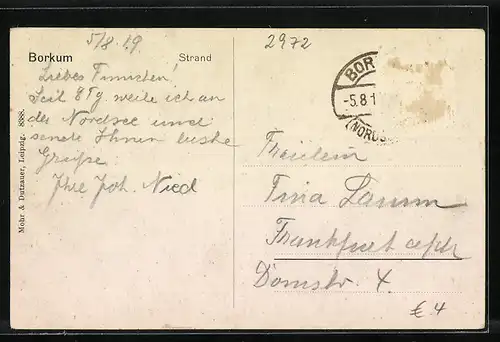 5/8.19.
2972
Borkum Strand
Liebes Tinnchen!
Seit 8 Tg. weile ich an
der Nordsee und
sende Ihnen beste
Grüße
Ihre Joh. Nied
Mohr & Dutzauer, Leipzig. 8388.
BOR
-5.8.1
(NORDS
Fräulein
Tina Lamm
Frankfurt
Domstr. 4.
€ 4